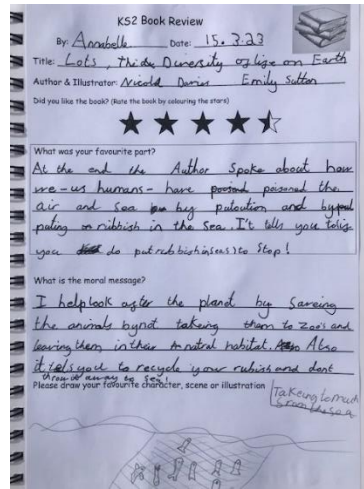 KS2 Book Review
By: Annabelle Date: 15.3.23
Title: Lots, The Diversity of life on Earth
Author & Illustrator: Nicola Davies Emily Sutton
Did you like the book? (Rate the book by colouring the stars)
What was your favourite part?
At the end the Author Spoke about how
we-us humans- have poisoned the
air and sea by polution and by
puting rubbish in the sea. It tells you to
you do put rubbish in sea) to Stop!
What is the moral message?
I help look after the planet by Saveing
the animals by not takeing them to Zoos and
leaving them in their natral habitat. Also
it tells you to recycle your rubish and dont
throw it away to sea!
Please draw your favourite character, scene or illustration
Takeing to much
from the sea